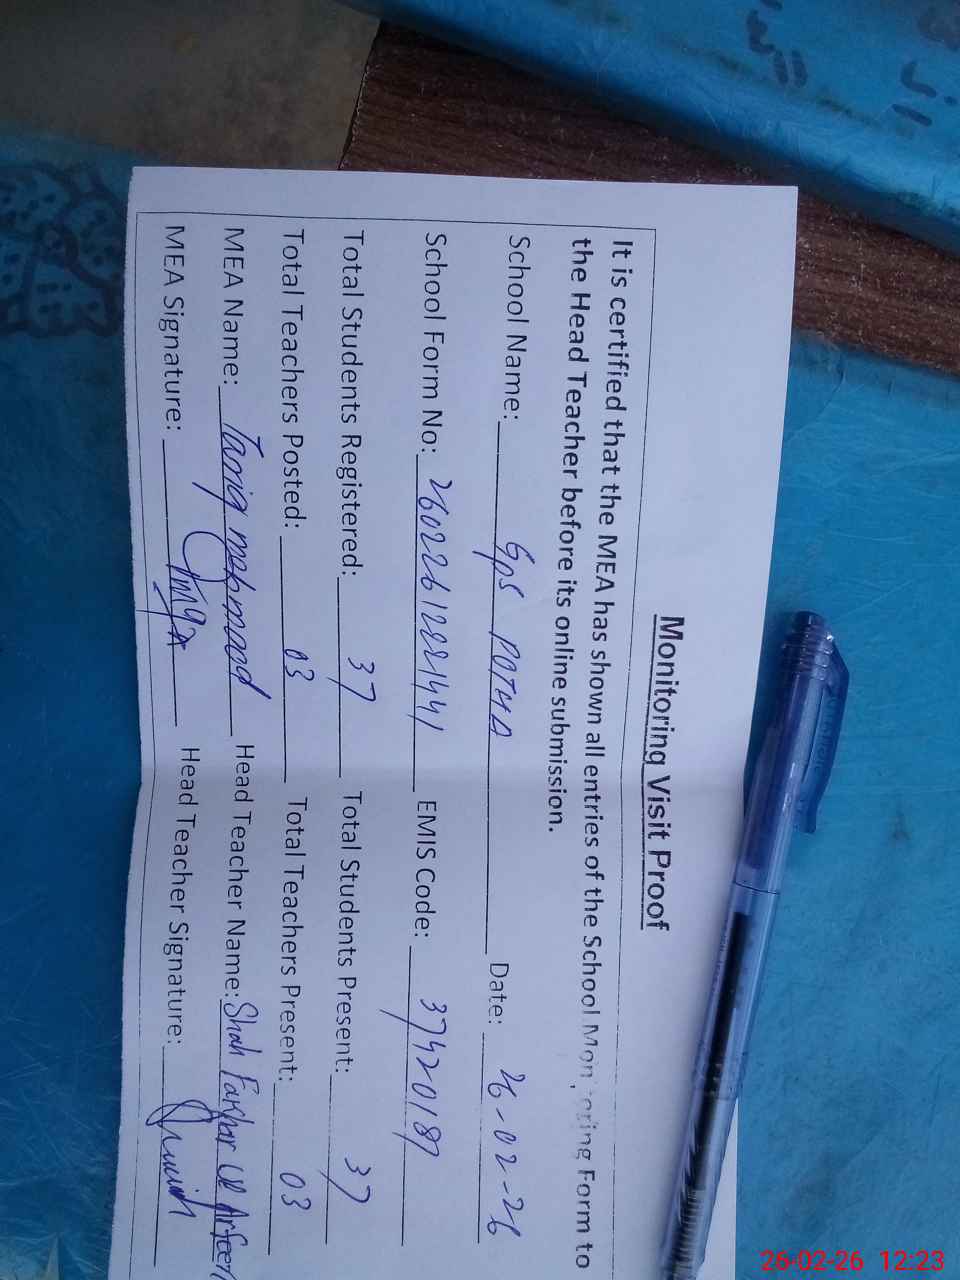 Monitoring Visit Proof
It is certified that the MEA has shown all entries of the School Monitoring Form to
the Head Teacher before its online submission.
School Name: GPS POTHA Date: 26-02-26
School Form No: EMIS Code: 37420187
Total Students Registered: 37 Total Students Present: 37
Total Teachers Posted: 03 Total Teachers Present: 03
MEA Name: Tariq mehmood Head Teacher Name: Shah Fakhar Ul Arfeen
MEA Signature: Head Teacher Signature:
26-02-26 12:23